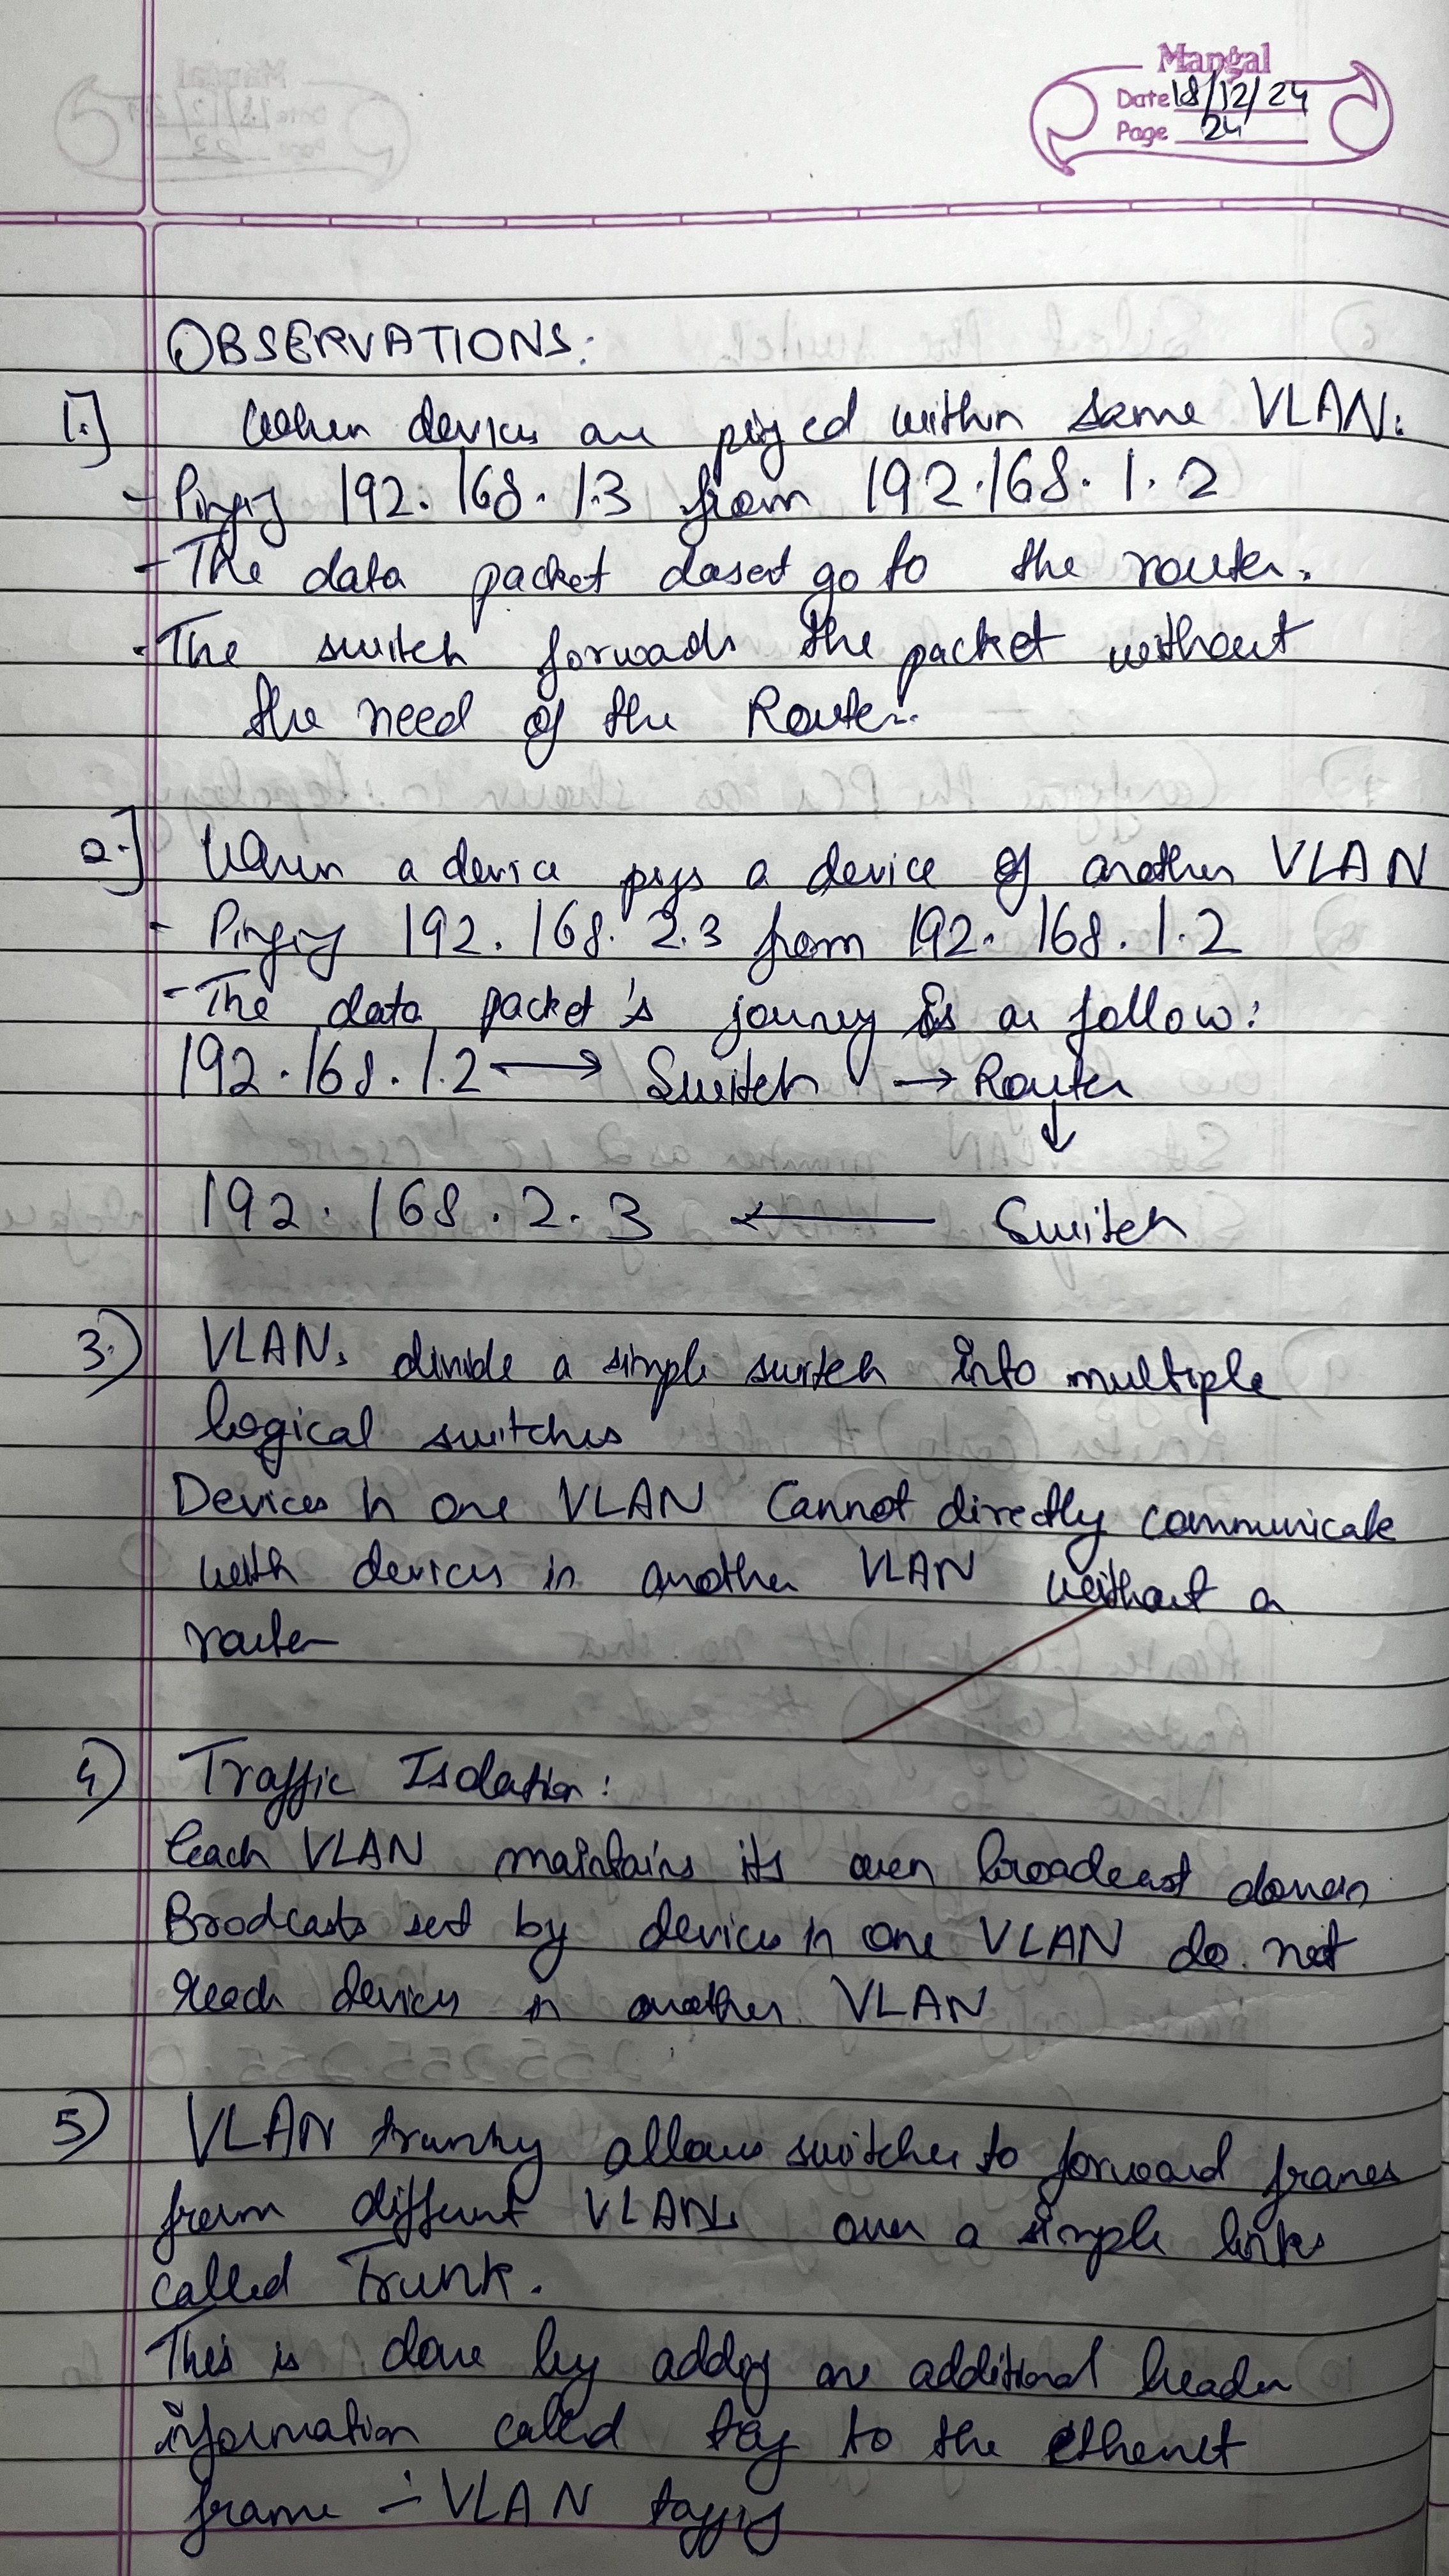 Mangal
Date 18/12/24
Page 24
OBSERVATIONS:
1.] When devices are pinged within same VLAN:
- Pinging 192.168.1.3 from 192.168.1.2
- The data packet dosent go to the router.
- The switch forwads the packet without
the need of the Router.
2.] When a device pings a device of another VLAN
- Pinging 192.168.2.3 from 192.168.1.2
- The data packet's journey is as follow:
192.168.1.2 → Switch → Router
↓
192.168.2.3 ← Switch
3.) VLANs divide a simple switch into multiple
logical switches
Devices in one VLAN Cannot directly communicate
with devices in another VLAN without a
router
4) Traffic Isolation:
Each VLAN maintains its own broadcast domain
Brodcasts sent by devices in one VLAN do not
reach devices in another VLAN
5) VLAN trunking allows switches to forward frames
from different VLANs over a simple links
called Trunk.
This is done by adding an additional header
information called tag to the ethernet
frame - VLAN tagging